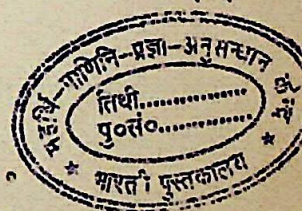 महर्षि-पाणिनि-प्रज्ञा-अनुसन्धान
तिथी................
पु०सं०................
भारती पुस्तकालय